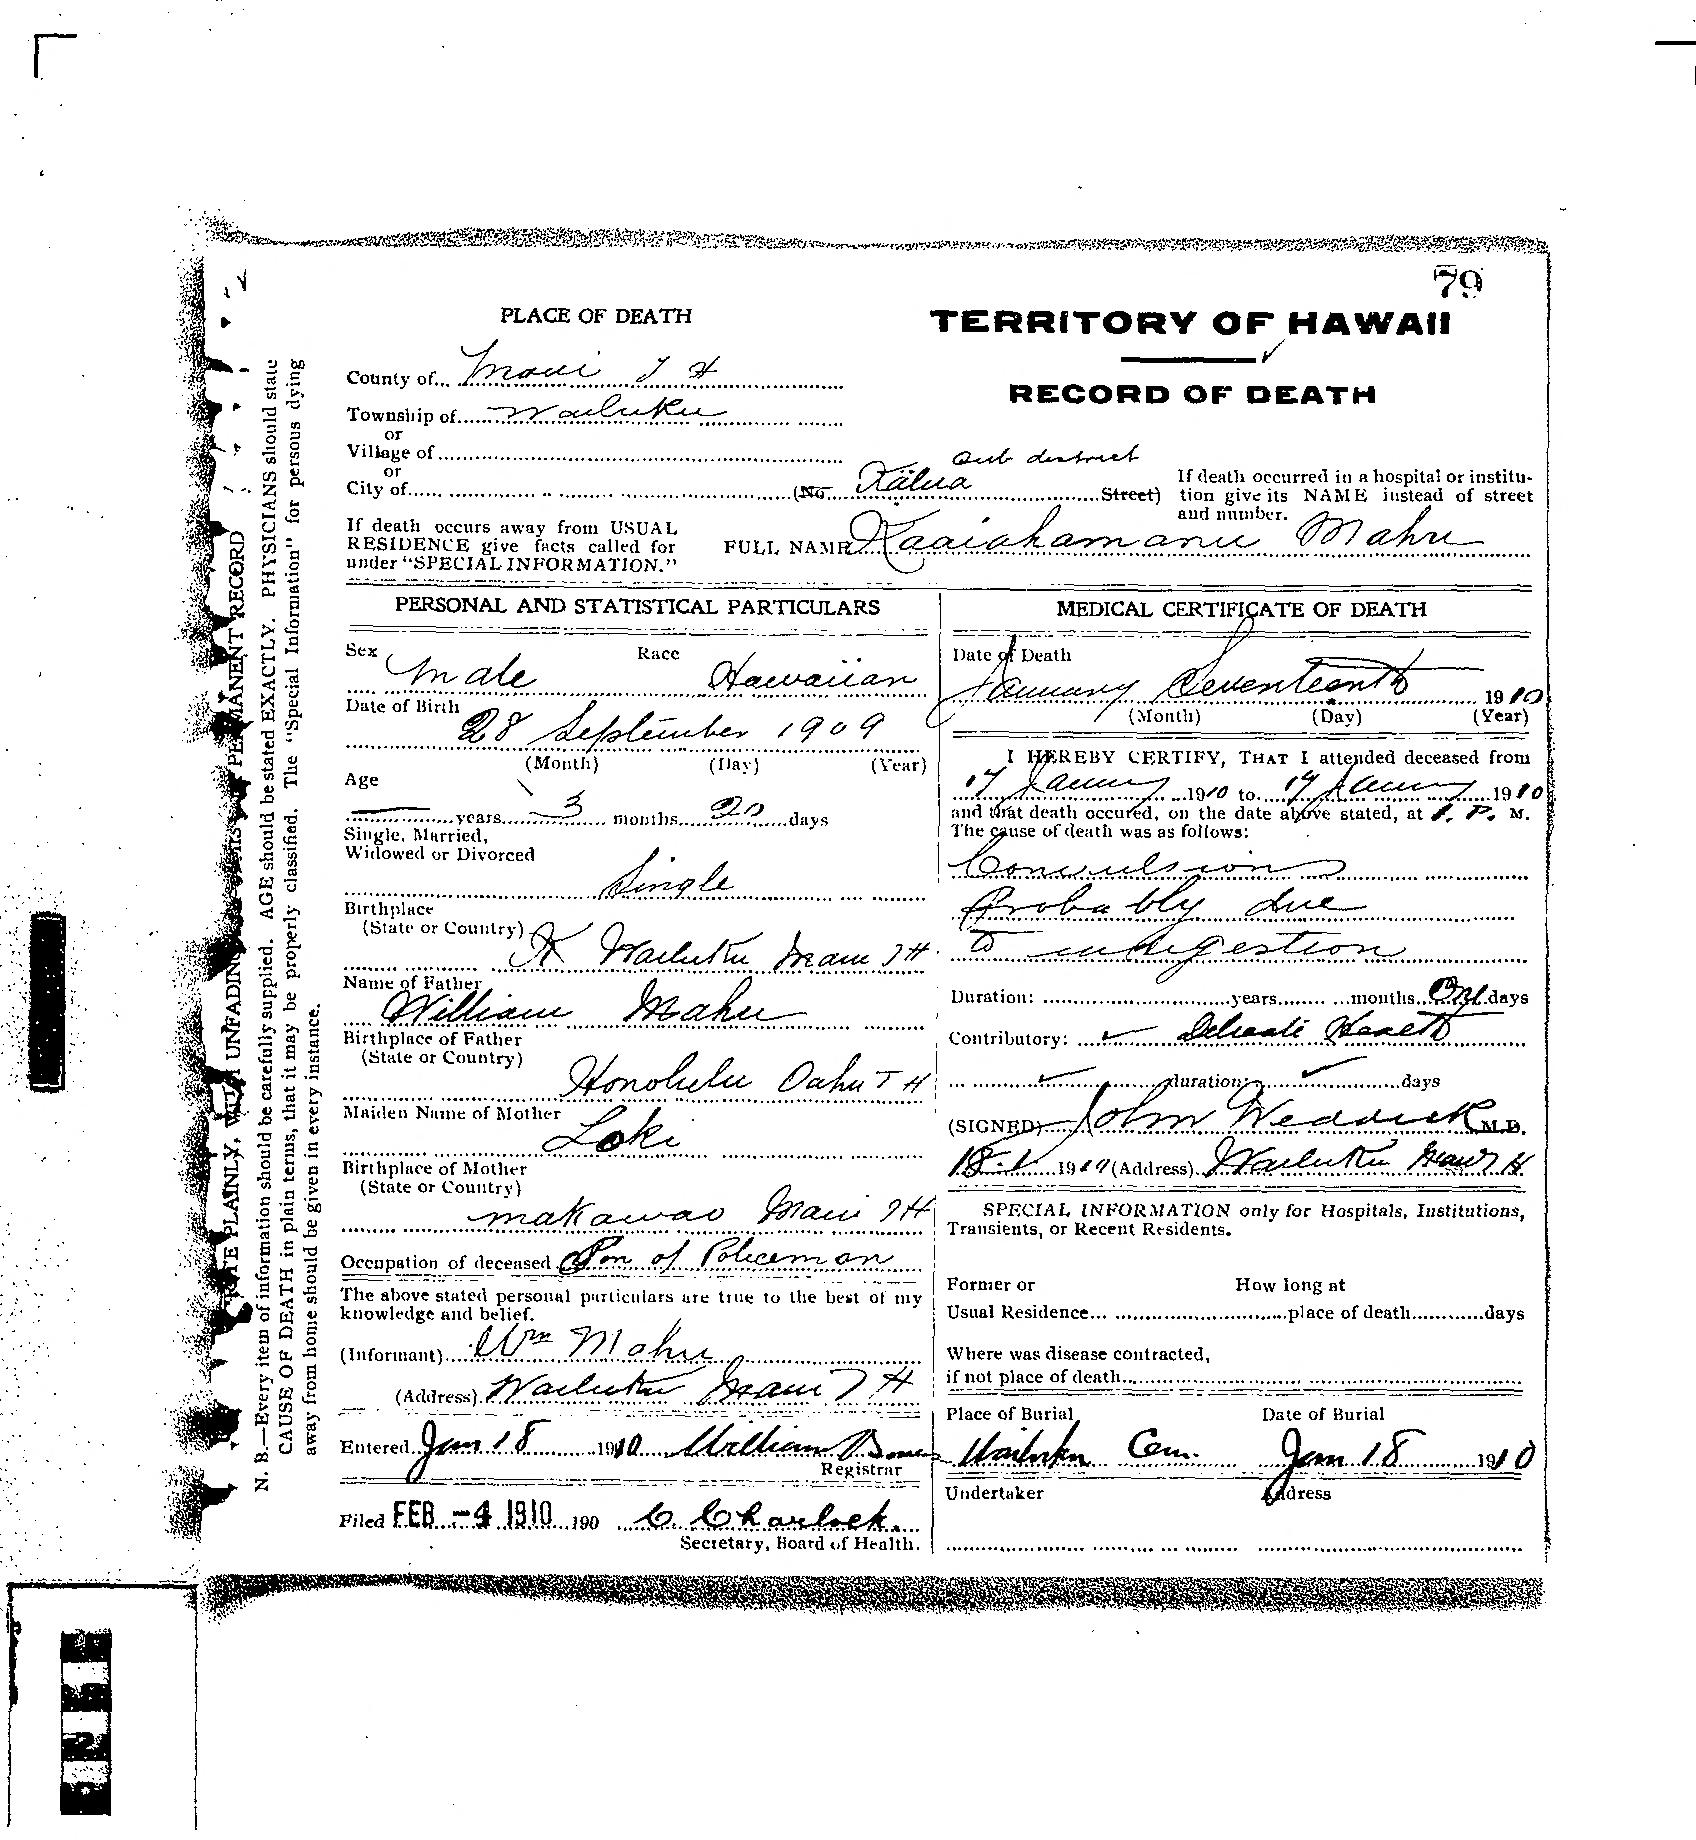 79
PLACE OF DEATH
TERRITORY OF HAWAII
RECORD OF DEATH
County of Maui T H
Township of Wailuku
or
Village of
or
City of (No Kalua Street)
Sub district
If death occurred in a hospital or institu-
tion give its NAME instead of street
and number.
If death occurs away from USUAL
RESIDENCE give facts called for
under "SPECIAL INFORMATION."
FULL NAME Kaaiahamanu Mahu
PERSONAL AND STATISTICAL PARTICULARS
Sex Male Race Hawaiian
Date of Birth
28 September 1909
(Month) (Day) (Year)
Age
years 3 months 20 days
Single, Married,
Widowed or Divorced
Single
Birthplace
(State or Country)
Wailuku Maui T H
Name of Father
William Mahu
Birthplace of Father
(State or Country)
Honolulu Oahu T H
Maiden Name of Mother
Loki
Birthplace of Mother
(State or Country)
Makawao Maui T H
Occupation of deceased Son of Policeman
The above stated personal particulars are true to the best of my
knowledge and belief.
(Informant) Wm Mahu
(Address) Wailuku Maui T H
Entered Jan 18 1910 William
Registrar
Filed FEB -4 1910 190 C. Charlock.
Secretary, Board of Health.
MEDICAL CERTIFICATE OF DEATH
Date of Death
January Seventeenth 1910
(Month) (Day) (Year)
I HEREBY CERTIFY, THAT I attended deceased from
17 January 1910 to 17 January 1910
and that death occured, on the date above stated, at 1. P. M.
The cause of death was as follows:
Convulsions
Probably due
to indigestion
Duration: years months One days
Contributory: Delicate Health
duration: days
(SIGNED) John Weddick M.D.
18.1 1910 (Address) Wailuku Maui T H
SPECIAL INFORMATION only for Hospitals, Institutions,
Transients, or Recent Residents.
Former or How long at
Usual Residence place of death days
Where was disease contracted,
if not place of death
Place of Burial Date of Burial
Wailuku Cem. Jan 18 1910
Undertaker Address
WRITE PLAINLY, WITH UNFADING PERMANENT RECORD
N. B.—Every item of information should be carefully supplied. AGE should be stated EXACTLY. PHYSICIANS should state
CAUSE OF DEATH in plain terms, that it may be properly classified. The "Special Information" for persons dying
away from home should be given in every instance.